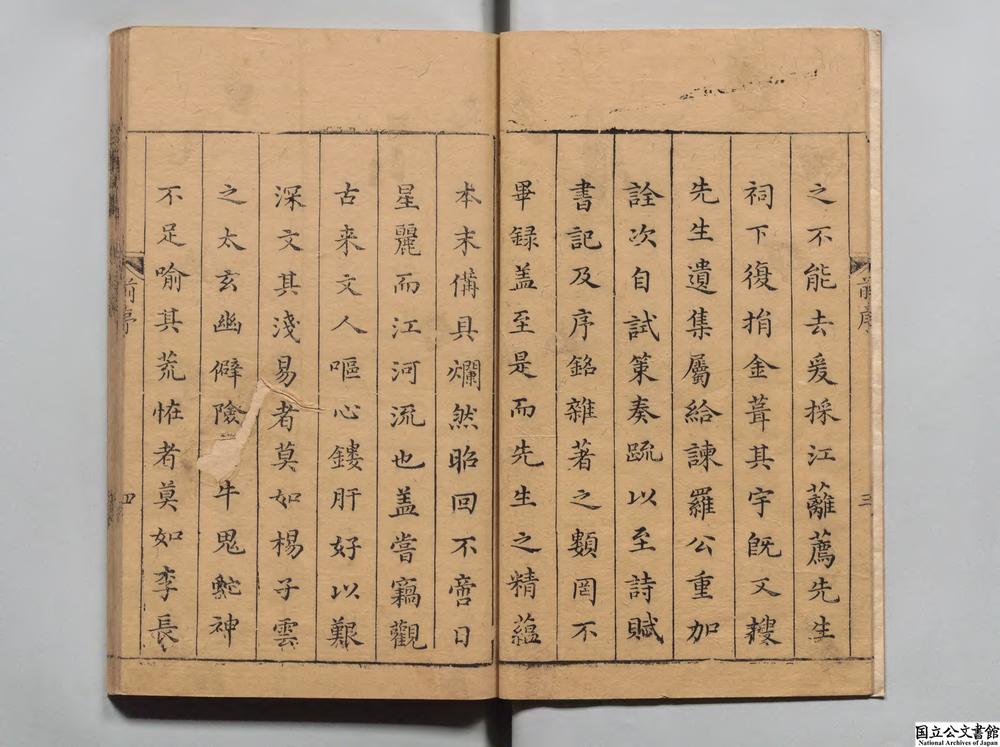 前序
三
之不能去爰採江蘺薦先生
祠下復捐金葺其宇既又搜
先生遺集屬給諫羅公重加
詮次自試策奏疏以至詩賦
書記及序銘雜著之類罔不
畢録盖至是而先生之精蘊
本末備具爛然昭回不啻日
星麗而江河流也盖嘗竊觀
古来文人嘔心鏤肝好以艱
深文其淺易者莫如楊子雲
之太玄幽僻險牛鬼鮀神
不足喻其荒恠者莫如李長
前序
四
国立公文書館
National Archives of Japan